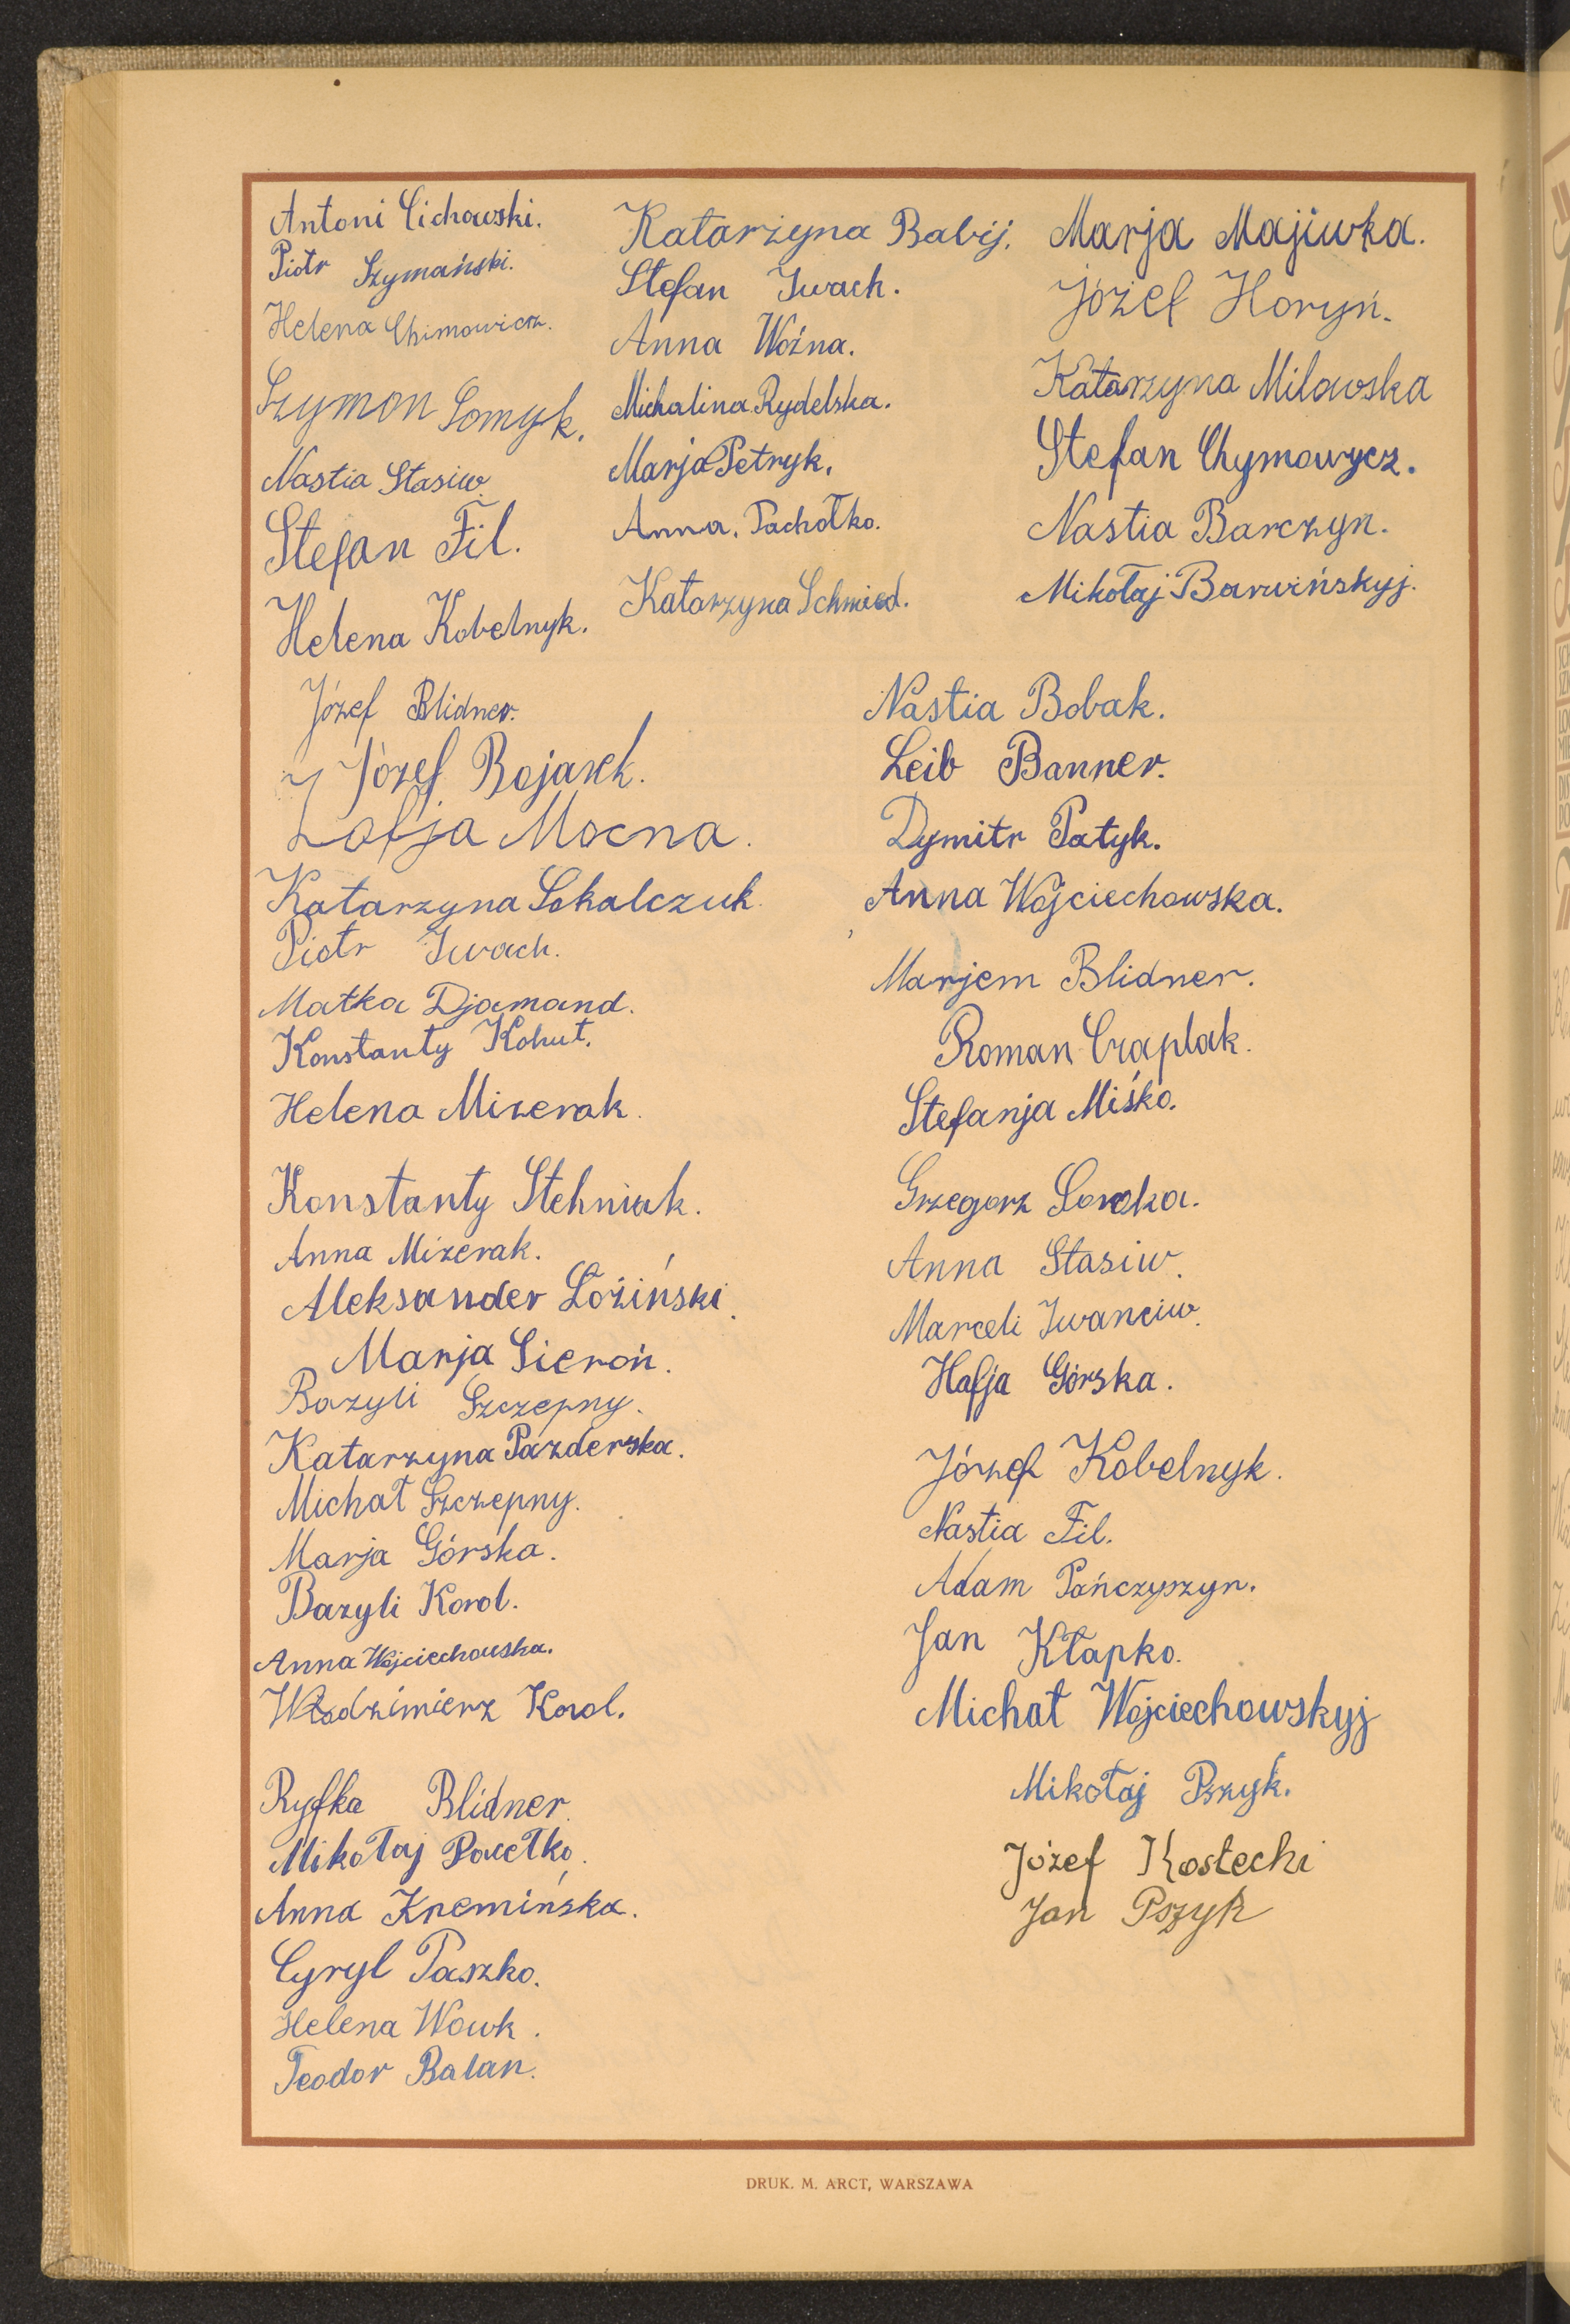 Antoni Cichowski.
Piotr Szymański.
Helena Chimowicz.
Szymon Somyk.
Nastia Stasiw.
Stefan Fil.
Helena Kobelnyk.
Katarzyna Babij.
Stefan Iwach.
Anna Woźna.
Michalina Rydelska.
Marja Petryk.
Anna. Pachołko.
Katarzyna Schmied.
Marja Majiwka.
Józef Horyń.
Katarzyna Milowska
Stefan Chymowycz.
Nastia Barczyn.
Mikołaj Barwińskyj.
Józef Blidner.
Józef Bojarek.
Zofja Mocna.
Katarzyna Sokalczuk.
Piotr Iwach.
Matka Djamand.
Konstanty Kohut.
Helena Mizerak.
Konstanty Stehniak.
Anna Mizerak.
Aleksander Łoziński.
Marja Sieroń.
Bazyli Szczepny.
Katarzyna Pazderska.
Michał Szczepny.
Marja Górska.
Bazyli Korol.
Anna Wojciechowska.
Włodzimierz Korol.
Ryfka Blidner.
Mikołaj Pawełko.
Anna Kremińska.
Cyryl Paszko.
Helena Wowk.
Teodor Balan.
Nastia Bobak.
Leib Banner.
Dymitr Patyk.
Anna Wojciechowska.
Marjem Blidner.
Roman Czaplak.
Stefanja Miśko.
Grzegorz Soroka.
Anna Stasiw.
Marceli Iwanciw.
Hafja Górska.
Józef Kobelnyk.
Nastia Fil.
Adam Pańczyszyn.
Jan Kłapko.
Michał Wojciechowskyj
Mikołaj Pszyk.
Józef Kostecki
Jan Pszyk
DRUK. M. ARCT, WARSZAWA